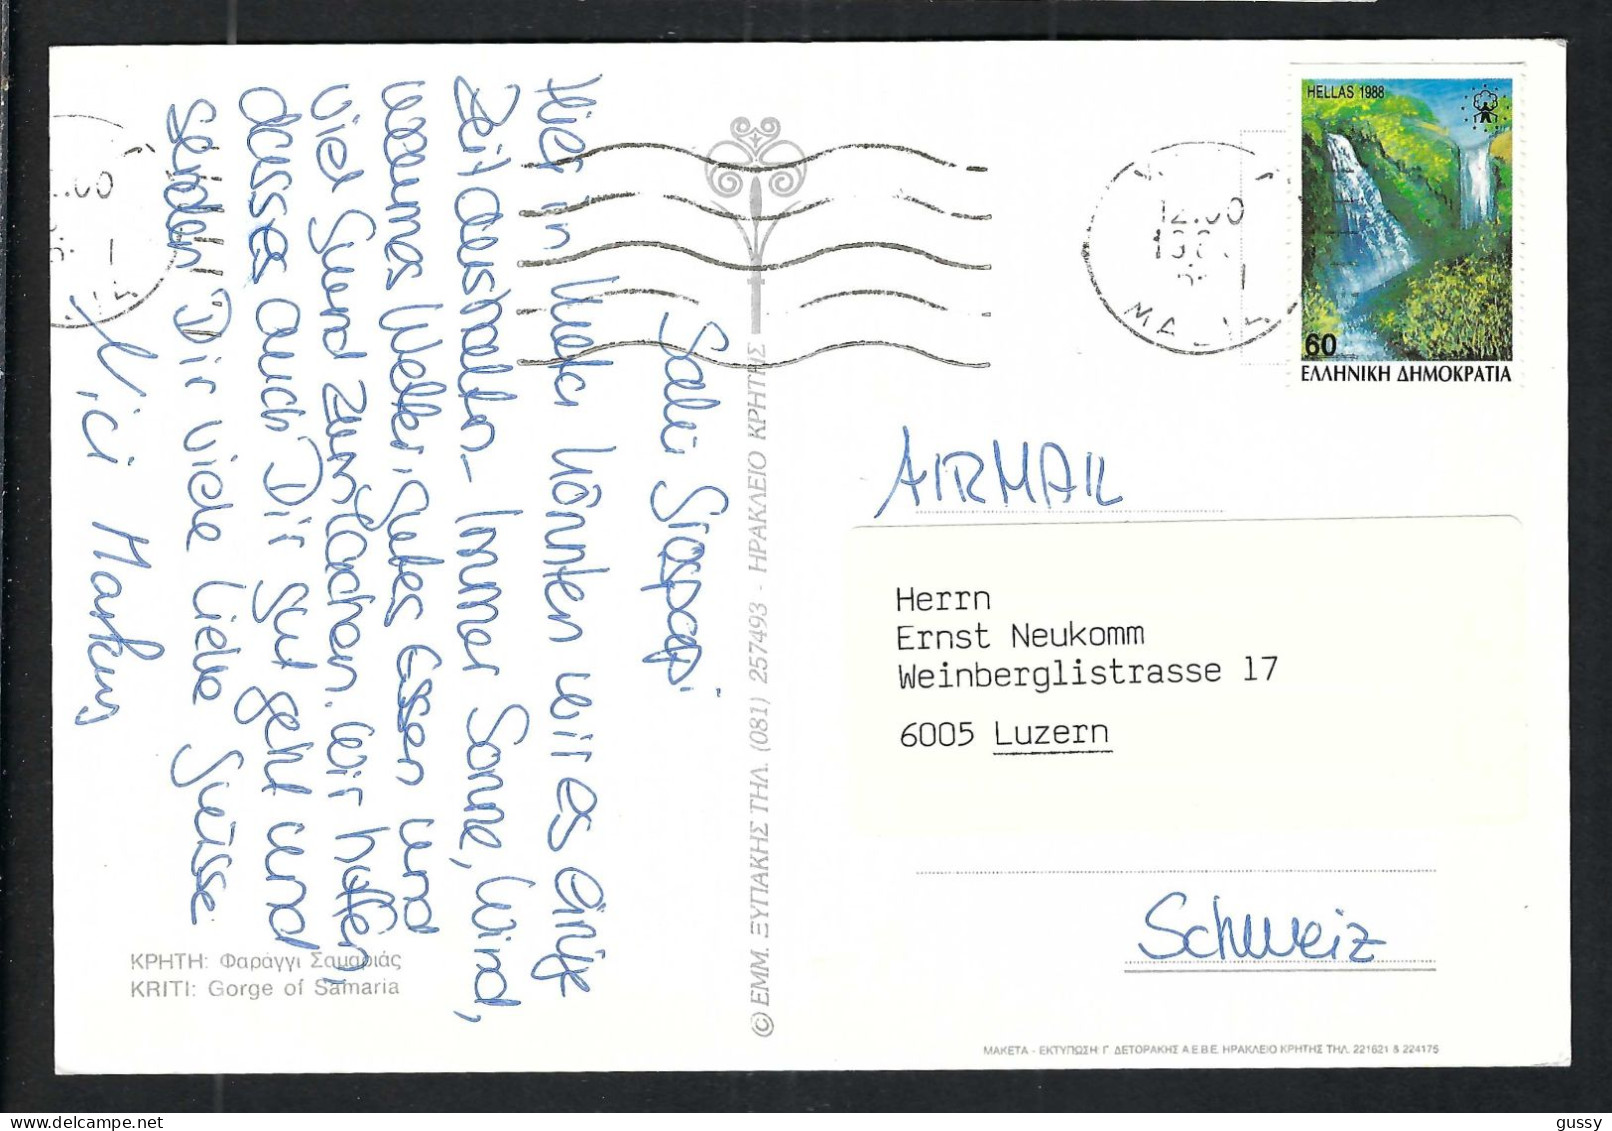 Salü Grospapi.
Hier in Kreta könnten wir es einige
Zeit aushalten - Immer Sonne, Wind,
warmes Wetter, gutes Essen und
viel Grund zum Lachen. Wir hoffen,
dass es auch Dir gut geht und
senden Dir viele liebe Grüsse.
Markus
ΚΡΗΤΗ: Φαράγγι Σαμαριάς
KRITI: Gorge of Samaria
© ΕΜΜ. ΞΥΠΑΚΗΣ ΤΗΛ. (081) 257493 - ΗΡΑΚΛΕΙΟ ΚΡΗΤΗΣ
12.00
HELLAS 1988
60
ΕΛΛΗΝΙΚΗ ΔΗΜΟΚΡΑΤΙΑ
AIRMAIL
Herrn
Ernst Neukomm
Weinberglistrasse 17
6005 Luzern
Schweiz
ΜΑΚΕΤΑ - ΕΚΤΥΠΩΣΗ: Γ. ΔΕΤΟΡΑΚΗΣ Α.Ε.Β.Ε. ΗΡΑΚΛΕΙΟ ΚΡΗΤΗΣ ΤΗΛ. 221621 & 224175
gussy